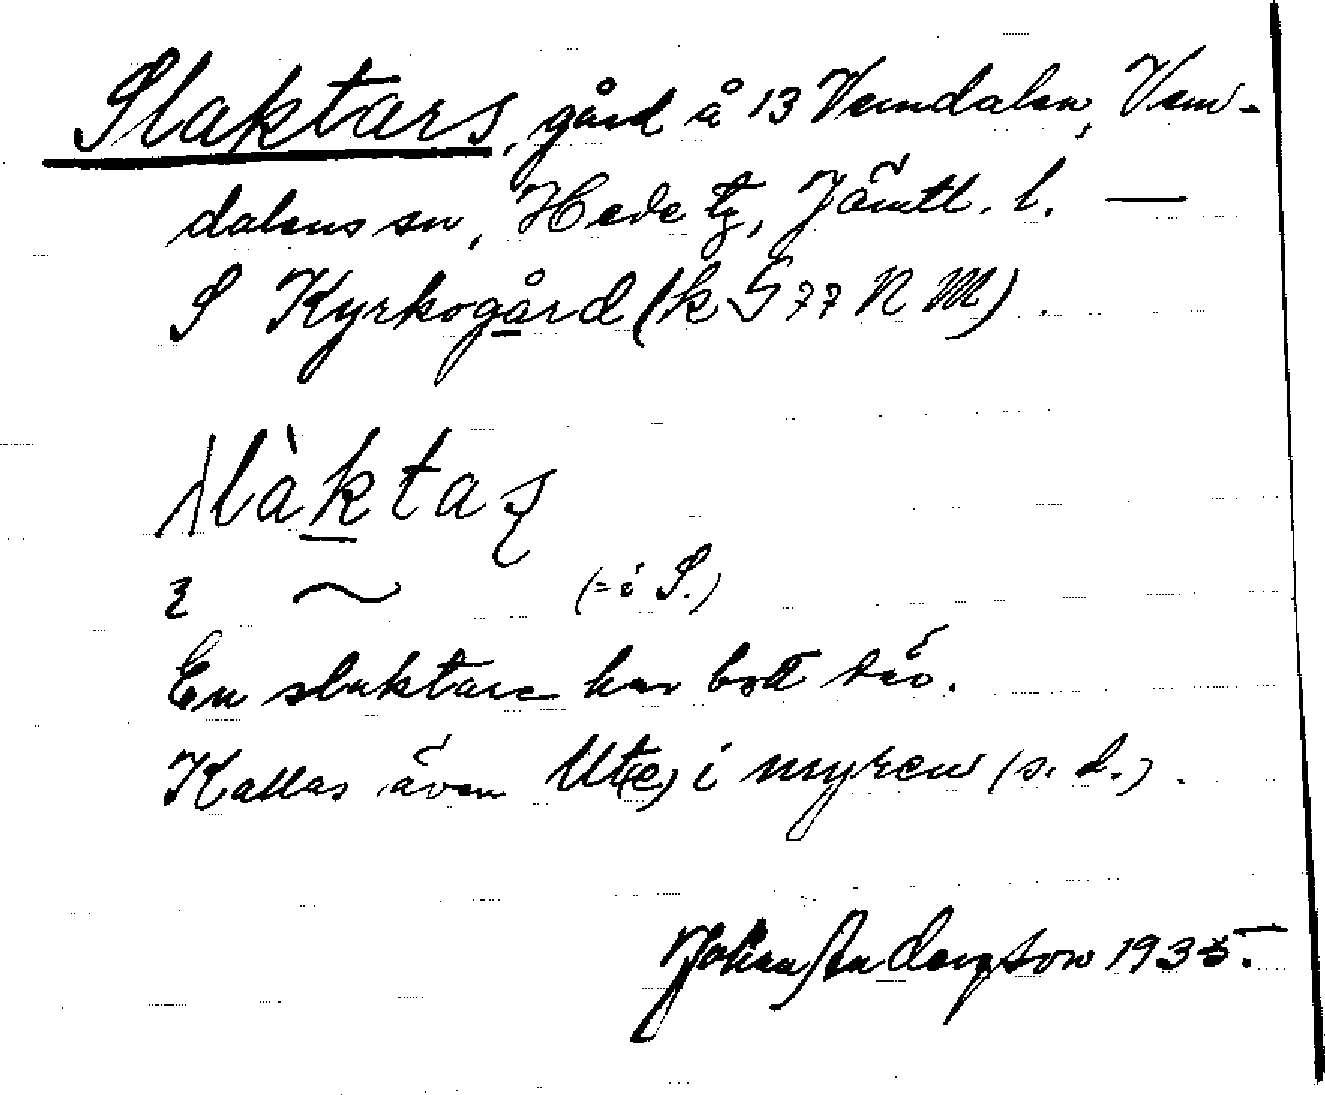 Slaktars, gård å 13 Vemdalen, Vem-
dalens sn, Hede tg, Jämtl. l. —
S Kyrkogård (k S 77 N M).
slàktaʂ
i ~ (= i S.)
En slaktare har bott där.
Kallas även Ut(e) i myren (s. d.).
Johan Anderson 1935.